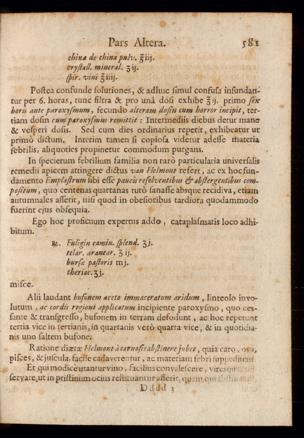 Pars Altera. 581
china de china pulv. ℥iij.
crystall. mineral. ʒij.
spir. vini ℥iiij.
Postea confunde solutiones, & adhuc simul confusa infundan-
tur per 6. horas, tunc filtra & pro unâ dosi exhibe ℥ij. primo sex
horis ante paroxysmum, secundo alteram dosin cum horror incipit, ter-
tiam dosin cum paroxysmum remittit: Intermediis diebus detur mane
& vesperi dosis. Sed cum dies ordinarius repetit, exhibeatur ut
primò dictum, Interim tamen si copiosa videtur adesse materia
febrilis, aliquoties propinetur commodum purgans.
In specierum febrilium familia non rarò particularia universalis
remedii apicem attingere dictus van Helmont refert, ac ex hoc fun-
damento Emplastrum sibi esse paucis resolventibus & abstergentibus com-
positum, quo centenas quartanas tutò sanasse absque recidiva, etiam
autumnales asserit, nisi quod in obesioribus tardiora quodammodo
fuerint ejus obsequia.
Ego hoc proficuum expertus addo, cataplasmatis loco adhi-
bitum.
℞. Fuligin camin. splend. ʒj.
telar. aranear. ʒ ij.
bursæ pastoris mj.
theriac. ʒj.
misce.
Alii laudant bufonem aceto immaceratum aridum, linteolo invo-
lutum, ac cordis regioni applicatum incipiente paroxysmo, quo ces-
sante & transgresso, bufonem in terram defodunt, ac hoc repetunt
tertia vice in tertianis, in quartanis verò quarta vice, & in quotidia-
nis uno saltem bufone.
Ratione diætæ Helmont à carnosis abstinere jubet, quia caro, ova,
pisces, & juscula, facile cadaverentur, ac materiam febri suppeditent
Et qui modice utantur vino, facilius convalescere, vires
servare, ut in pristinum ocius restituantur asserit,
Dddd 3